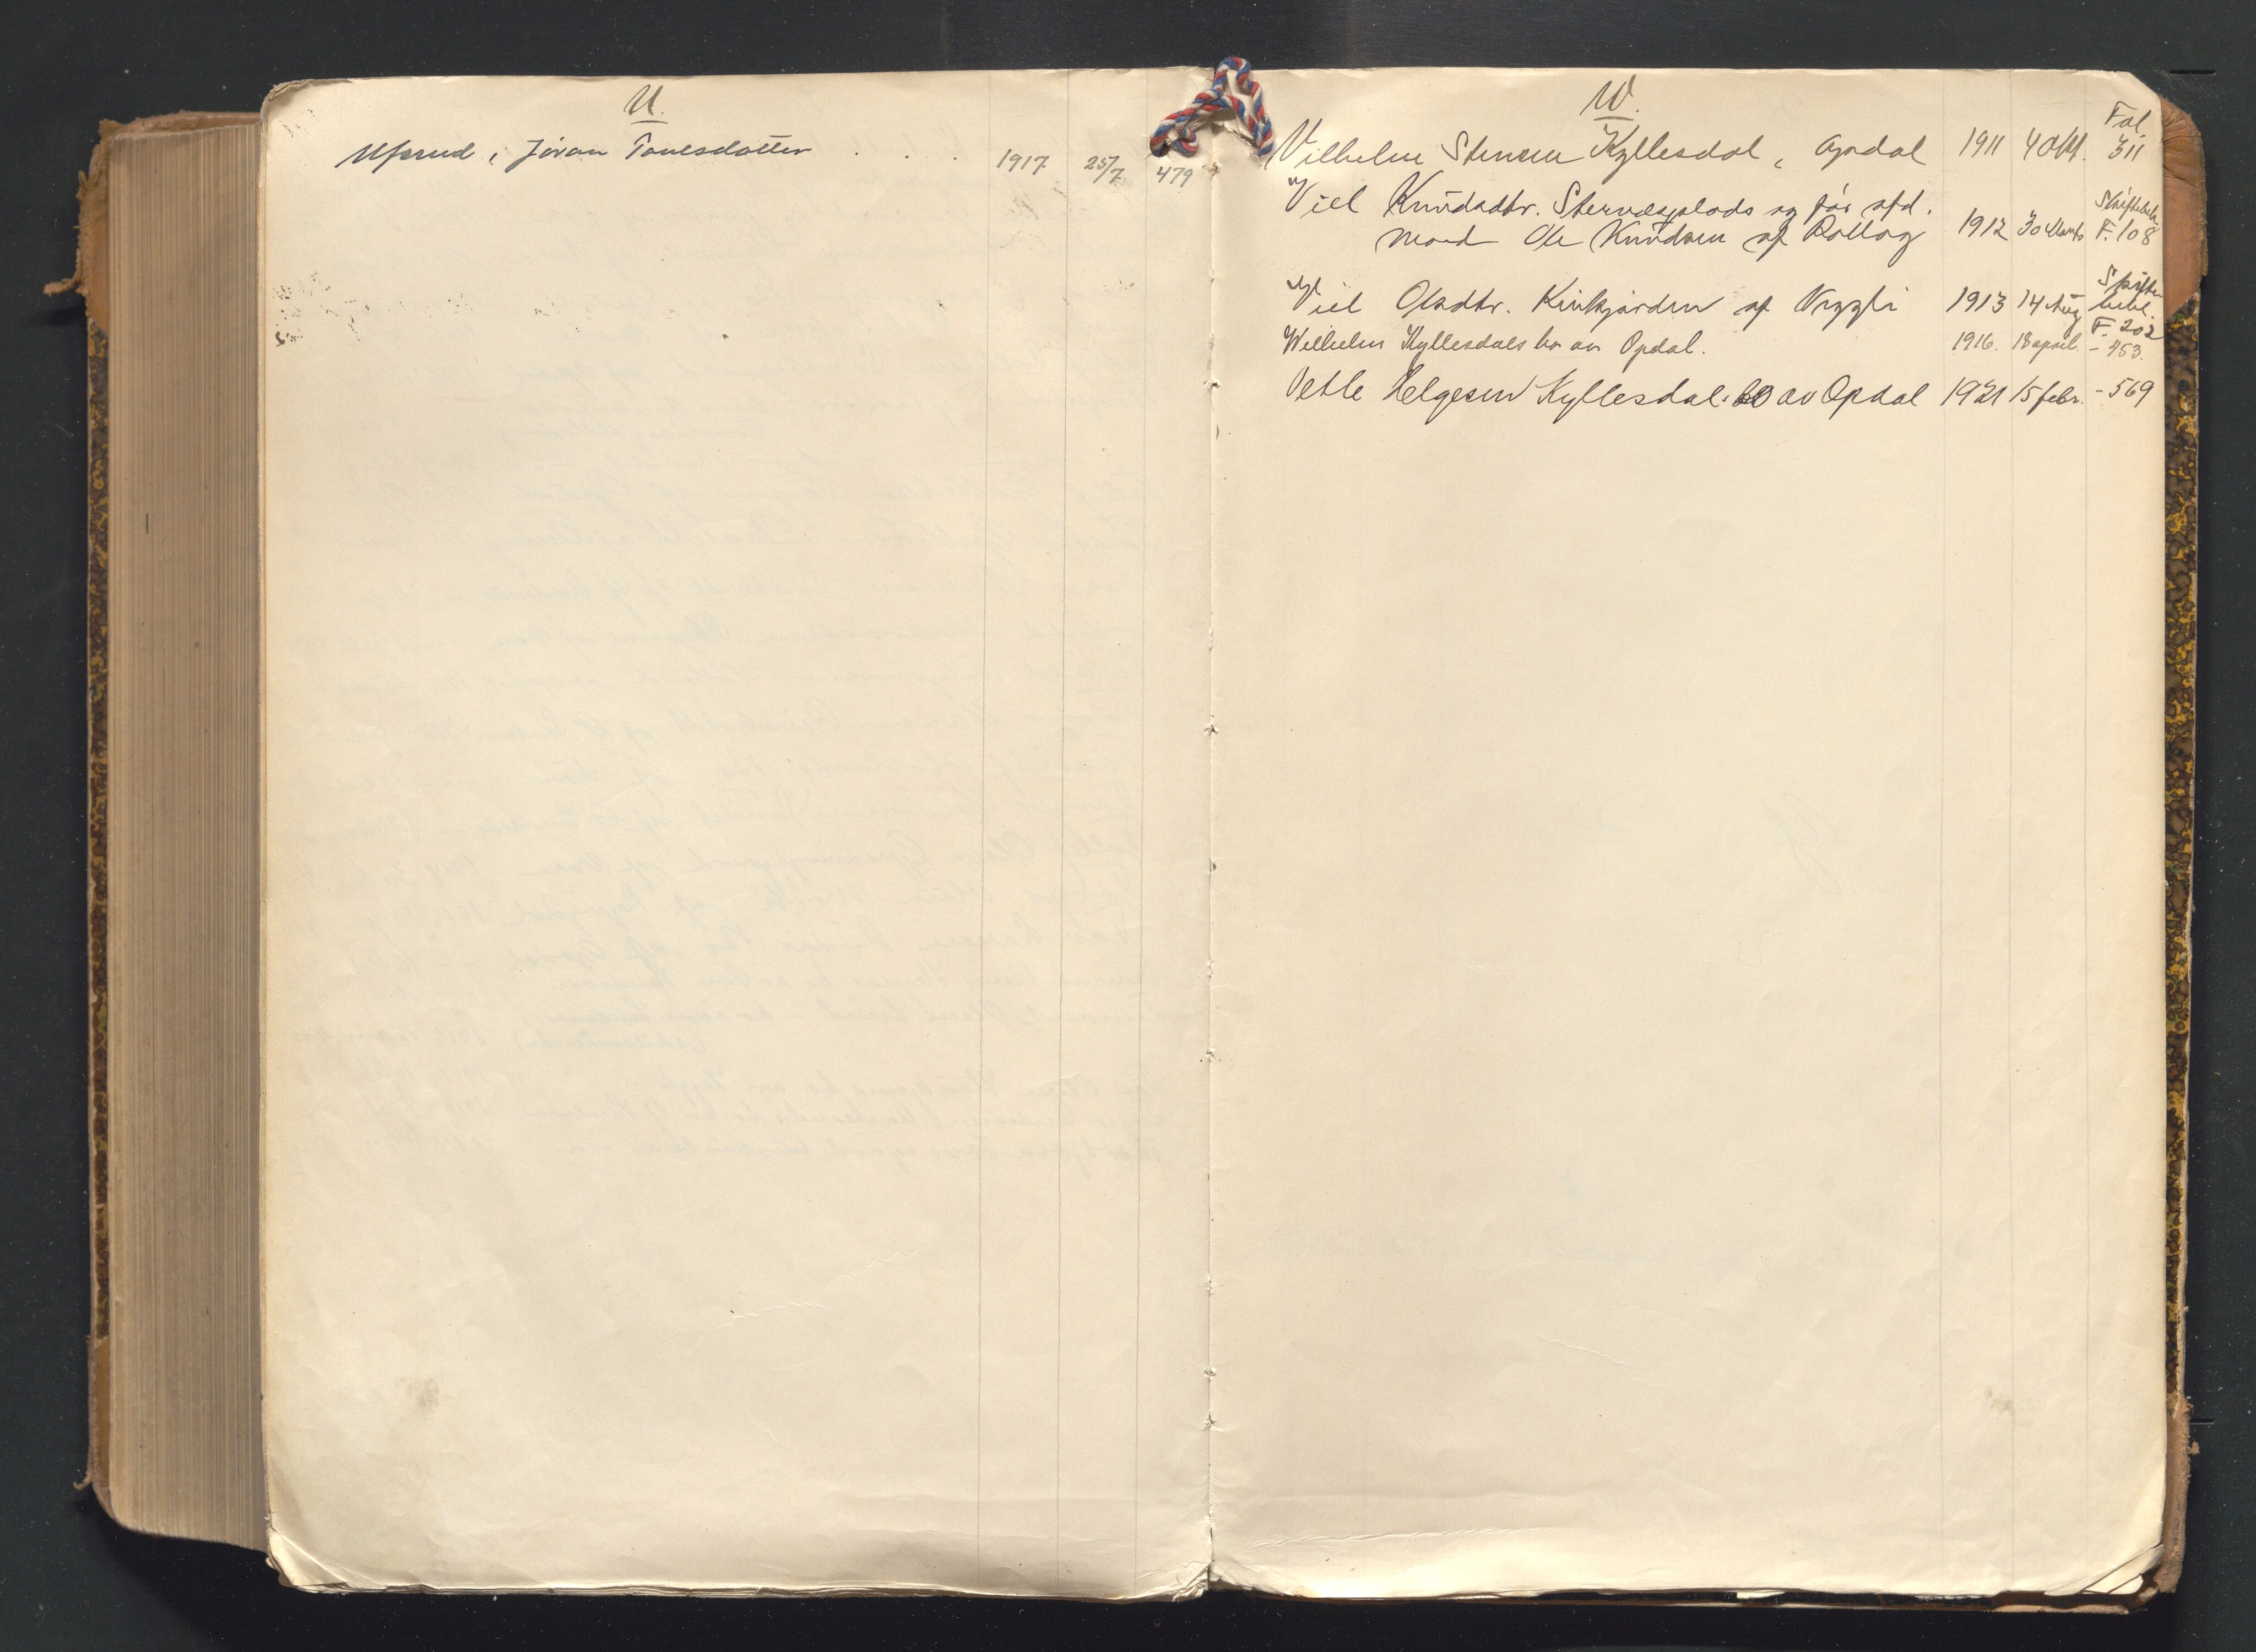 U.
Ufsrud, Jöran Paulsdatter . . . 1917 25/7 479
W.
Fol.
Vilhelm Stensen Kyllesdal, Opdal 1911 4 Okt. 311
Viel Knudsdtr. Stervasplads og før afd. Skiftebeh.
Mand Ole Knudsen af Rollag 1912 30 Marts F. 108
Viel Olsdtr. Kirkjorden af Veggli 1913 14 Aug Skifte-
behl.
F. 202
Wilhelm Kyllesdals bo av Opdal. 1916. 18 april. - 453.
Vetle Helgesen Kyllesdal. bo av Opdal 1921 15 febr. - 569